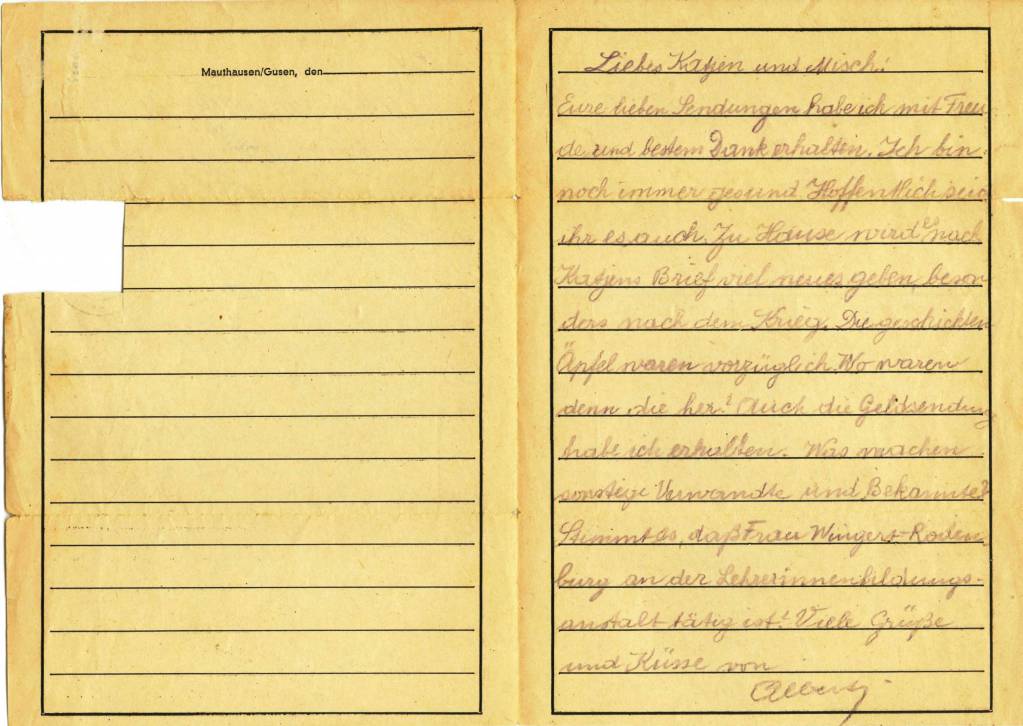 Mauthausen/Gusen, den
Liebes Katjen und Misch!
Eure lieben Sendungen habe ich mit Freu-
de und bestem Dank erhalten. Ich bin
noch immer gesund Hoffentlich seid
ihr es auch. Zu Hause wird es nach
Katjens Brief viel neues geben, beson
ders nach dem Krieg. Die geschickten
Äpfel waren vorzüglich. Wo waren
denn die her? Auch die Geldsendung
habe ich erhalten. Was machen
sonstige Verwandte und Bekannte?
Stimmt es, daß Frau Wingert-Roden-
burg an der Lehrerinnenbildungs-
anstalt tätig ist? Viele Grüße
und Küsse von